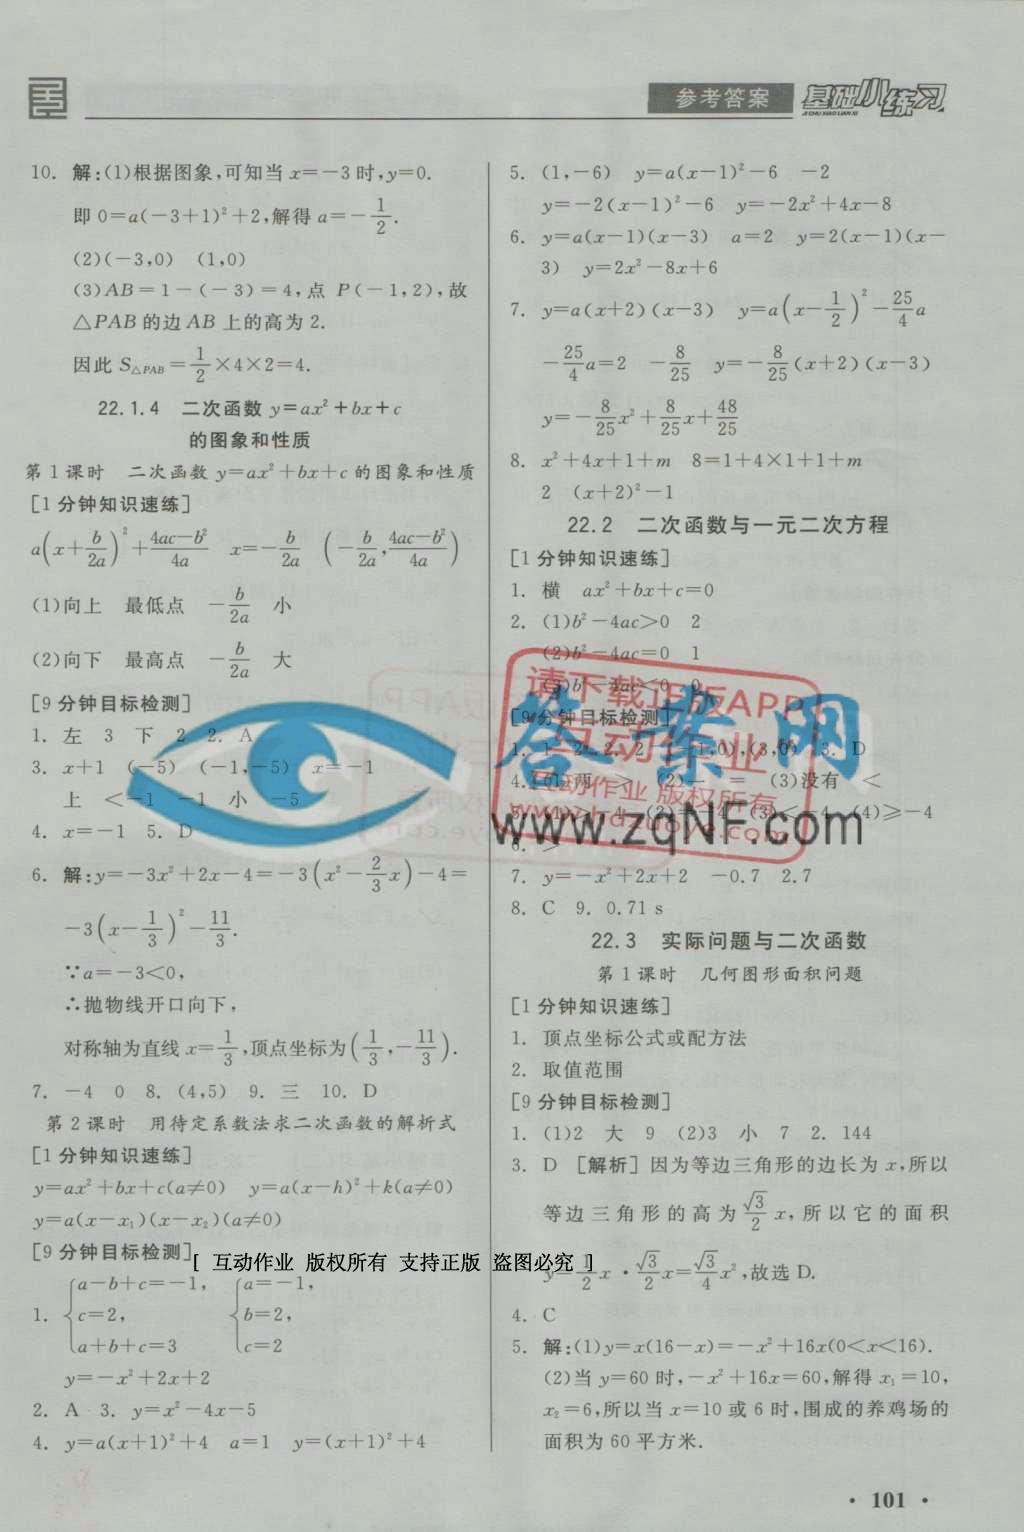 参考答案 基础小练习
JICHU XIAO LIAN XI
10. 解:(1)根据图象,可知当 x=-3 时,y=0.
即 0=a(-3+1)²+2,解得 a=-1/2.
(2)(-3,0) (1,0)
(3)AB=1-(-3)=4,点 P(-1,2),故
△PAB 的边 AB 上的高为 2.
因此 S△PAB=1/2×4×2=4.
22.1.4 二次函数 y=ax²+bx+c
的图象和性质
第 1 课时 二次函数 y=ax²+bx+c 的图象和性质
[1 分钟知识速练]
a(x+b/2a)²+(4ac-b²)/4a x=-b/2a (-b/2a,(4ac-b²)/4a)
(1)向上 最低点 -b/2a 小
(2)向下 最高点 -b/2a 大
[9 分钟目标检测]
1. 左 3 下 2 2. A
3. x+1 (-5) (-1,-5) x=-1
上 <-1 -1 小 -5
4. x=-1 5. D
6. 解:y=-3x²+2x-4=-3(x²-2/3x)-4=
-3(x-1/3)²-11/3.
∵a=-3<0,
∴抛物线开口向下,
对称轴为直线 x=1/3,顶点坐标为(1/3,-11/3).
7. -4 0 8. (4,5) 9. 三 10. D
第 2 课时 用待定系数法求二次函数的解析式
[1 分钟知识速练]
y=ax²+bx+c(a≠0) y=a(x-h)²+k(a≠0)
y=a(x-x₁)(x-x₂)(a≠0)
[9 分钟目标检测]
1. {a-b+c=-1, c=2, a+b+c=3 {a=-1, b=2, c=2
y=-x²+2x+2
2. A 3. y=x²-4x-5
4. y=a(x+1)²+4 a=1 y=(x+1)²+4
5. (1,-6) y=a(x-1)²-6 -2
y=-2(x-1)²-6 y=-2x²+4x-8
6. y=a(x-1)(x-3) a=2 y=2(x-1)(x-
3) y=2x²-8x+6
7. y=a(x+2)(x-3) y=a(x-1/2)²-25/4a
-25/4a=2 -8/25 y=-8/25(x+2)(x-3)
y=-8/25x²+8/25x+48/25
8. x²+4x+1+m 8=1+4×1+1+m
2 (x+2)²-1
22.2 二次函数与一元二次方程
[1 分钟知识速练]
1. 横 ax²+bx+c=0
2. (1)b²-4ac>0 2
(2)b²-4ac=0 1
(3)b²-4ac<0 0
[9 分钟目标检测]
1. 1 2 2. 2 (1,0),(3,0) 3. D
4. (1)两 > (2)一 = (3)没有 <
5. (1)>-4 (2)=-4 (3)<-4 (4)≥-4
6. >
7. y=-x²+2x+2 -0.7 2.7
8. C 9. 0.71 s
22.3 实际问题与二次函数
第 1 课时 几何图形面积问题
[1 分钟知识速练]
1. 顶点坐标公式或配方法
2. 取值范围
[9 分钟目标检测]
1. (1)2 大 9 (2)3 小 7 2. 144
3. D [解析] 因为等边三角形的边长为 x,所以
等边三角形的高为 √3/2 x,所以它的面积
y=1/2x·√3/2x=√3/4x²,故选 D.
4. C
5. 解:(1)y=x(16-x)=-x²+16x(0<x<16).
(2)当 y=60 时,-x²+16x=60,解得 x₁=10,
x₂=6,所以当 x=10 或 6 时,围成的养鸡场的
面积为 60 平方米.
· 101 ·
请下载正版APP
互动作业
互动作业 版权所有
答案网
www.zqNF.com
[ 互动作业 版权所有 支持正版 盗图必究 ]